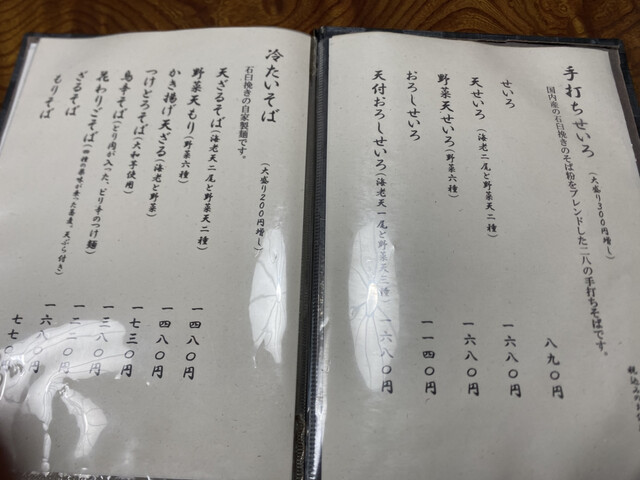 手打ちせいろ（大盛り300円増し）
国内産の石臼挽きのそば粉をブレンドした二八の手打ちそばです。
せいろ 八九〇円
天せいろ（海老二尾と野菜天二種） 一六八〇円
野菜天せいろ（野菜六種） 一六八〇円
おろしせいろ 一一四〇円
天付おろしせいろ（海老天一尾と野菜天三種） 一六八〇円
税込みの
冷たいそば（大盛り200円増し）
石臼挽きの自家製麺です。
天ざるそば（海老天二尾と野菜天二種） 一四八〇円
野菜天もり（野菜六種） 一四八〇円
かき揚げ天ざる（海老と野菜） 一七三〇円
つけとろそば（大和芋使用） 一三八〇円
鳥辛そば（とり肉が入った、ピリ辛のつけ麺） 一二二〇円
花わりごそば（四種の薬味が乗った蕎麦、天ぷら付き） 一六八〇円
ざるそば 七七〇
もりそば